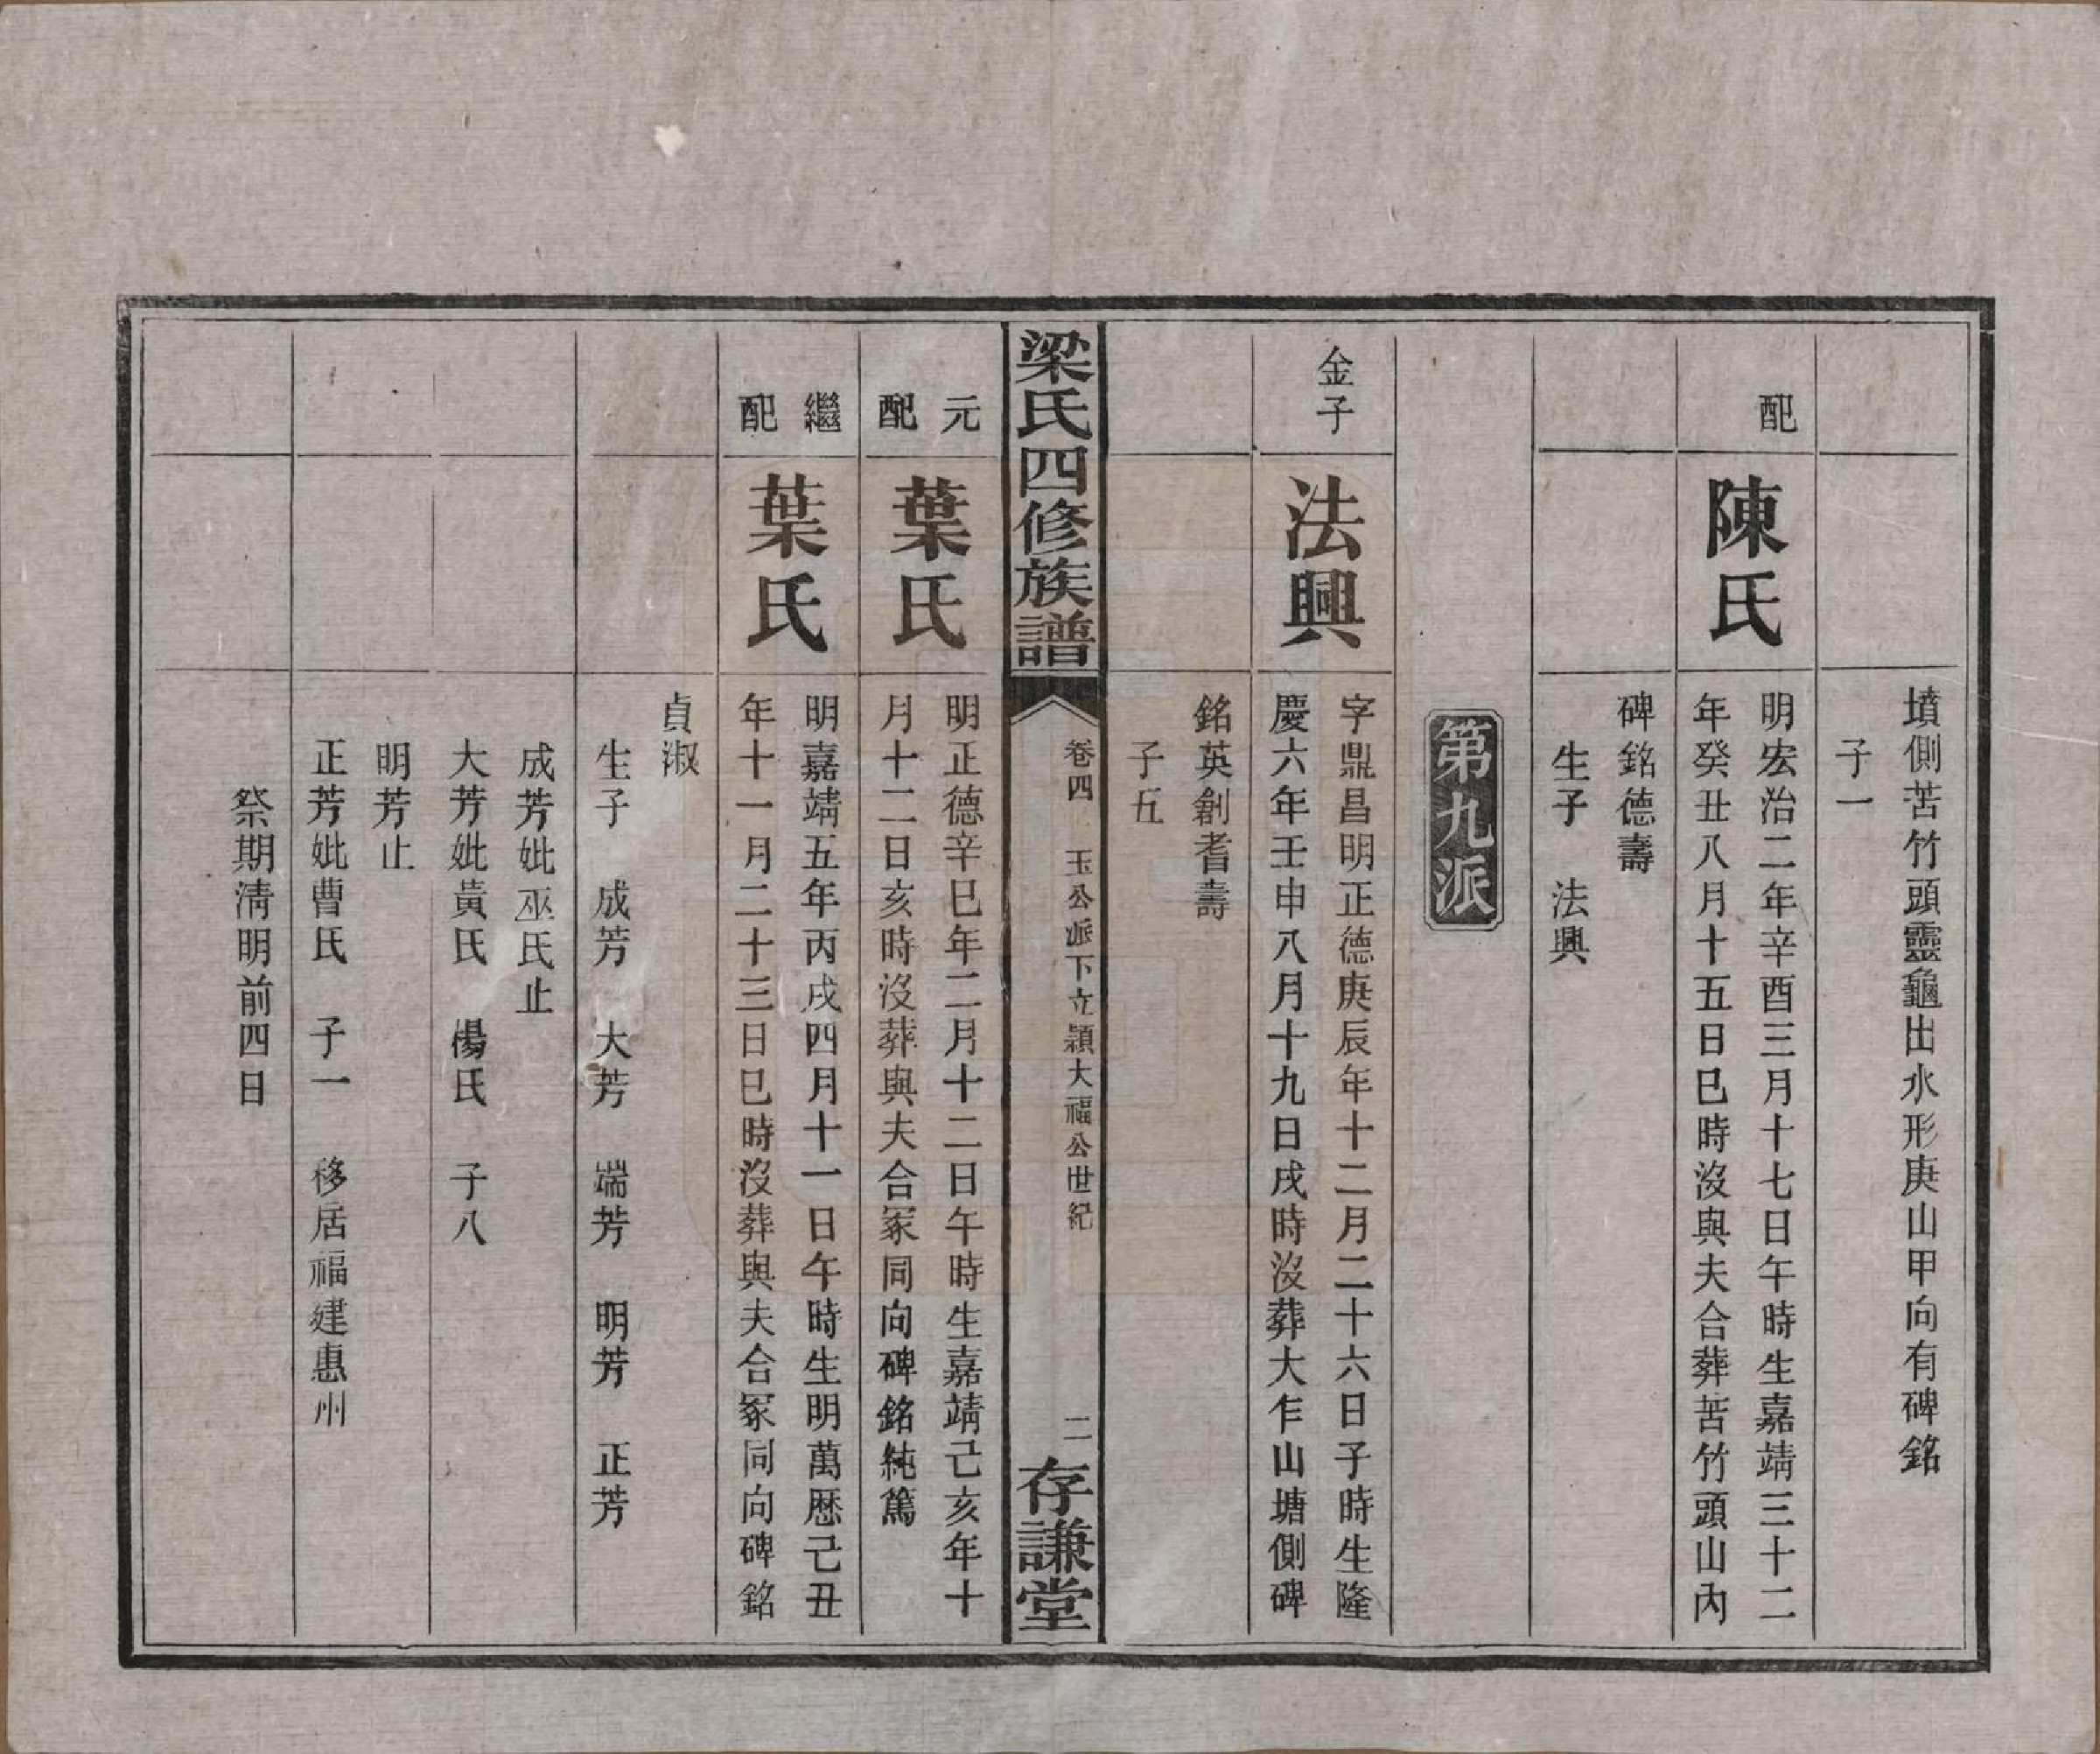 墳側苦竹頭靈龜出水形庚山甲向有碑銘
子一
配
陳氏
明宏治二年辛酉三月十七日午時生嘉靖三十二
年癸丑八月十五日巳時沒與夫合葬苦竹頭山內
碑銘德壽
生子　法興
第九派
金子
法興
字鼎昌明正德庚辰年十二月二十六日子時生隆
慶六年壬申八月十九日戌時沒葬大乍山塘側碑
銘英創耆壽
子五
梁氏四修族譜
卷四　玉公派下立顯大福公世紀
二
存謙堂
元配
葉氏
明正德辛巳年二月十二日午時生嘉靖己亥年十
月十二日亥時沒葬與夫合冢同向碑銘純篤
繼配
葉氏
明嘉靖五年丙戌四月十一日午時生明萬歷己丑
年十一月二十三日巳時沒葬與夫合冢同向碑銘
貞淑
生子　成芳　大芳　端芳　明芳　正芳
成芳妣巫氏止
大芳妣黃氏　楊氏　子八
明芳止
正芳妣曹氏　子一　移居福建惠州
祭期清明前四日